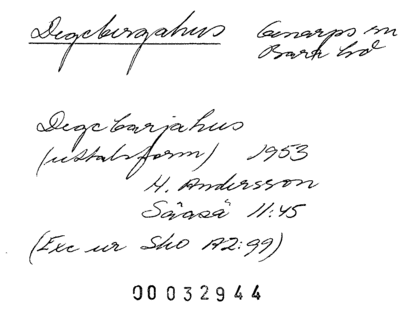 Degebergahus Genarps sn
Bara hd
Degebarjahus
(uttalsform) 1953
H. Andersson
Såaså 11:45
(Exc ur Sko A2:99)
00032944